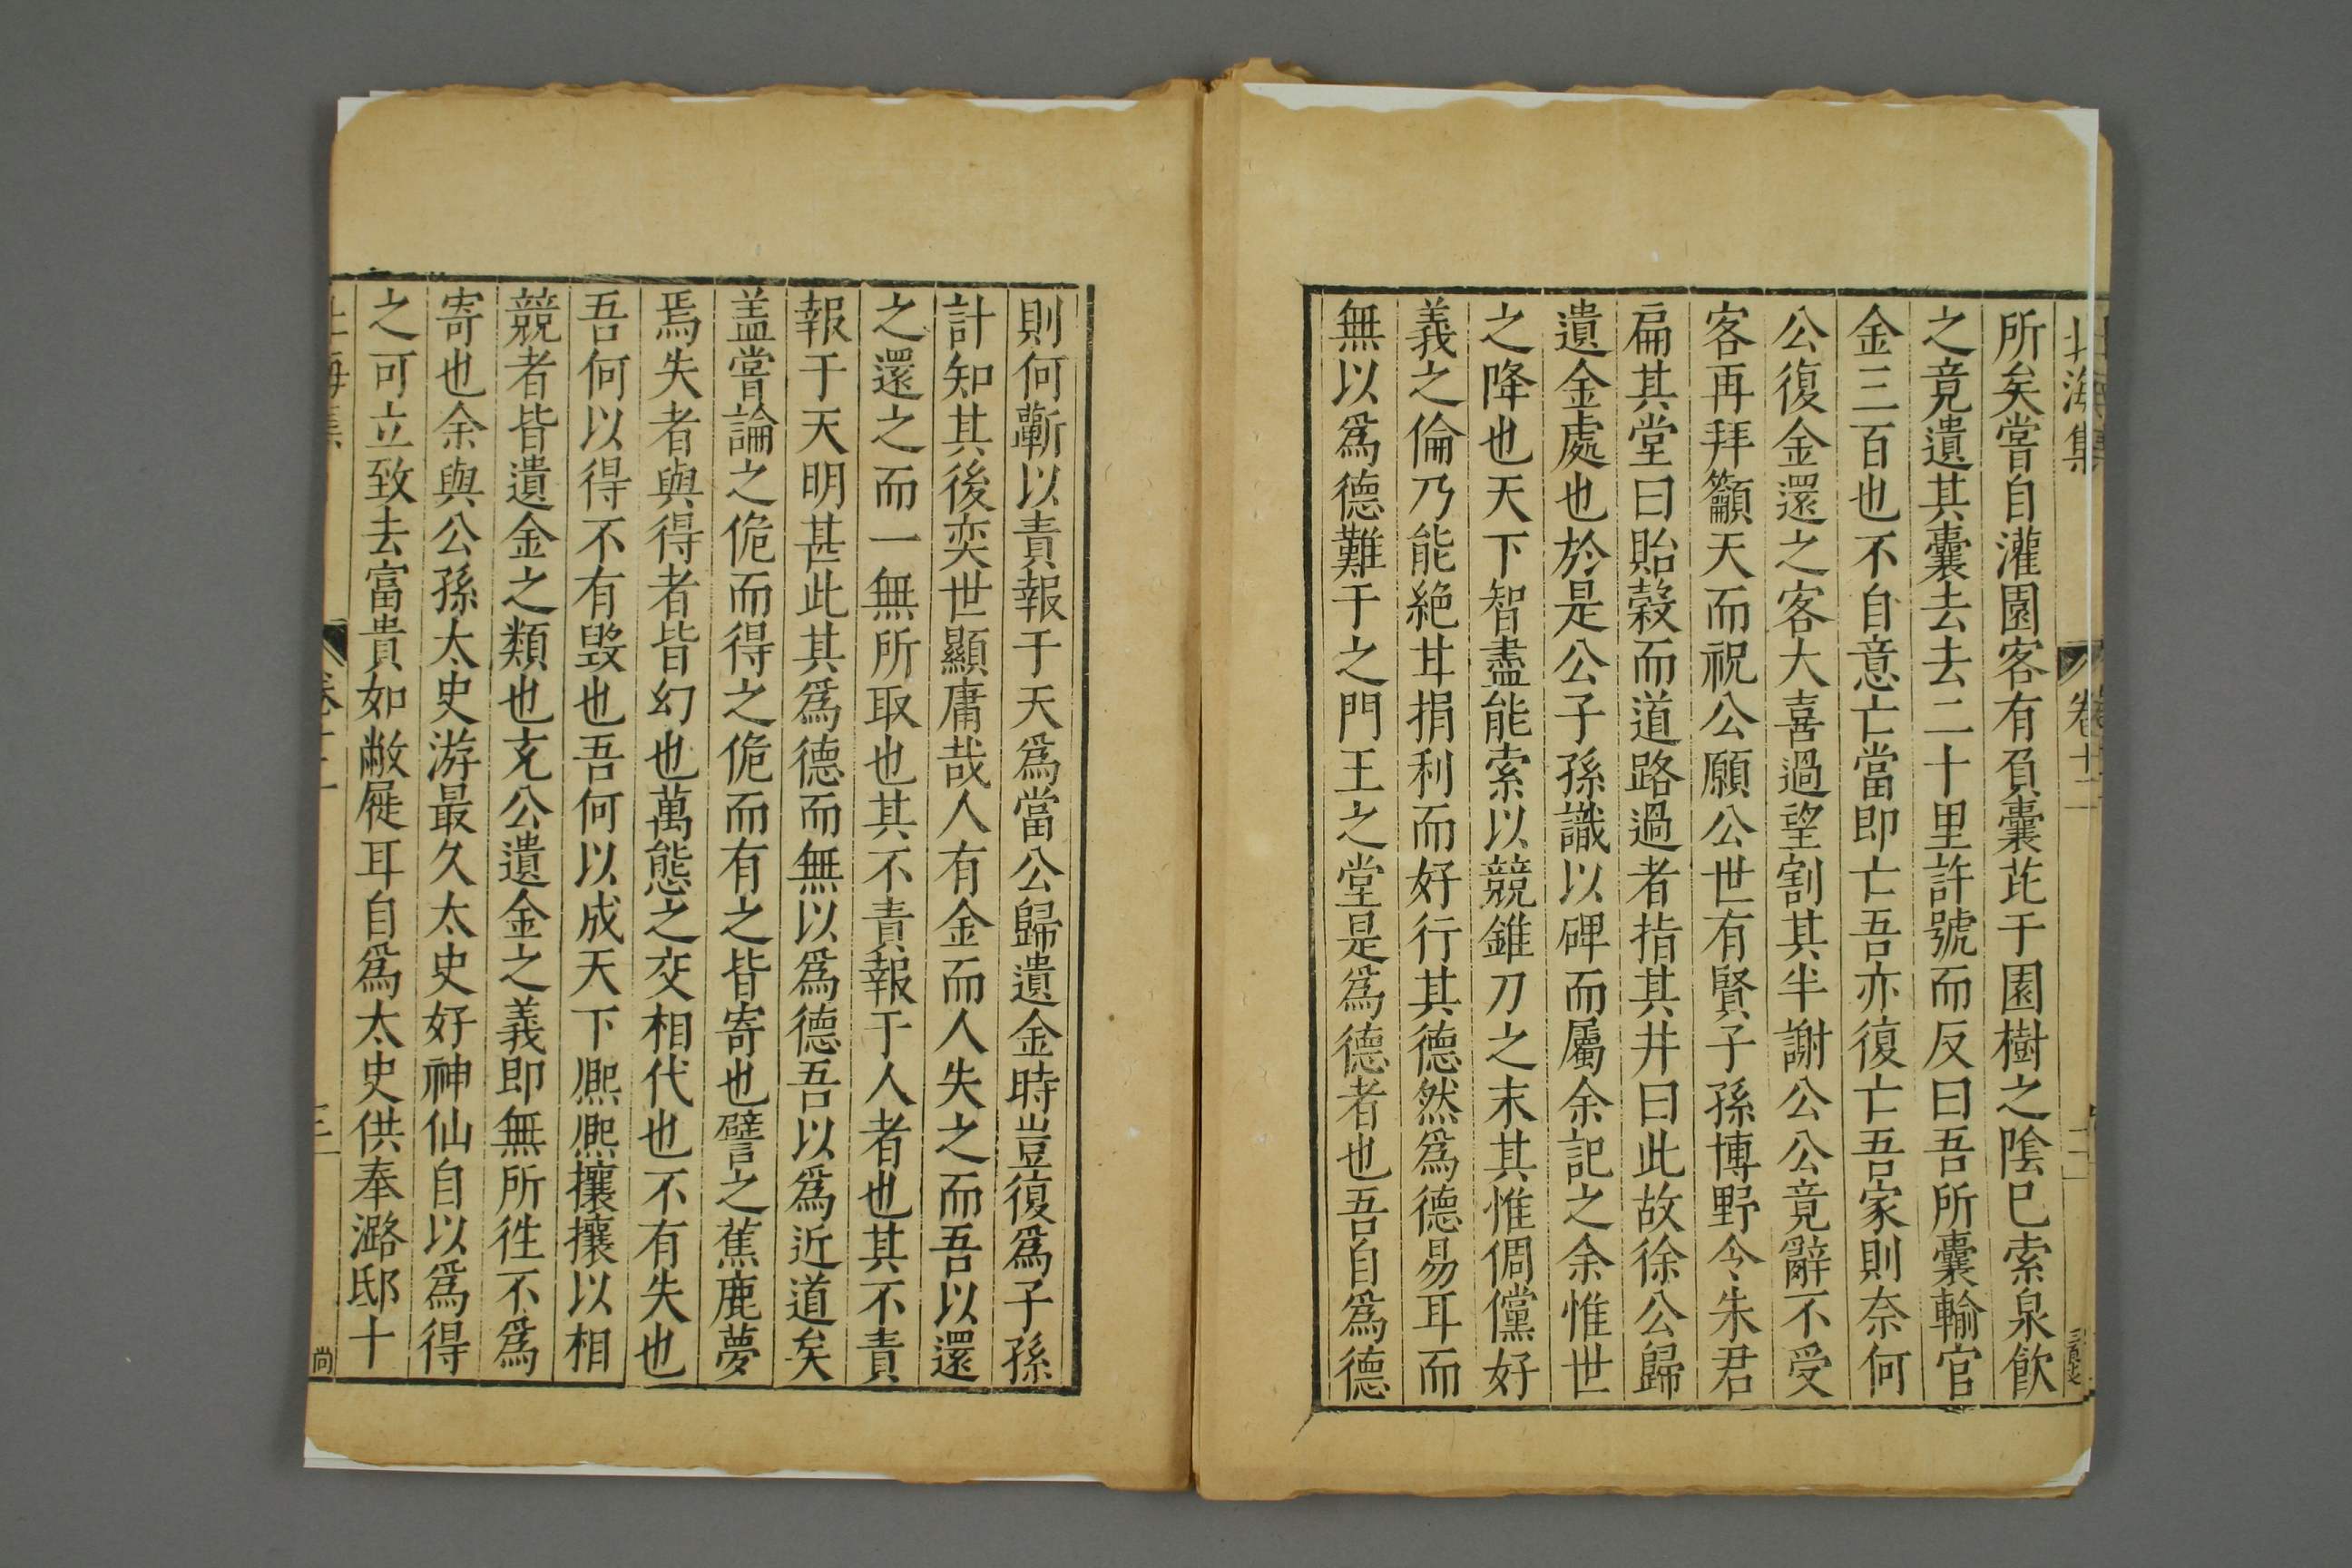 北海集 卷十二 二
所矣嘗自灌園客有負囊芘于園樹之陰巳索泉飲
之竟遺其囊去去二十里許號而反曰吾所囊輸官
金三百也不自意亡當即亡吾亦復亡吾家則奈何
公復金還之客大喜過望割其半謝公公竟辭不受
客再拜籲天而祝公願公世有賢子孫博野令朱君
扁其堂曰貽榖而道路過者指其井曰此故徐公歸
遺金處也於是公子孫識以碑而屬余記之余惟世
之降也天下智盡能索以競錐刀之末其惟倜儻好
義之倫乃能絶甘捐利而好行其德然爲德易耳而
無以爲德難于之門王之堂是爲德者也吾自爲德
則何蘄以責報于天爲當公歸遺金時豈復爲子孫
計知其後奕世顯庸哉人有金而人失之而吾以還
之還之而一無所取也其不責報于人者也其不責
報于天明甚此其爲德而無以爲德吾以爲近道矣
盖嘗論之佹而得之佹而有之皆寄也譬之蕉鹿夢
焉失者與得者皆幻也萬態之交相代也不有失也
吾何以得不有毀也吾何以成天下熈熈攘攘以相
競者皆遺金之類也充公遺金之義即無所徃不爲
寄也余與公孫太史游最久太史好神仙自以爲得
之可立致去富貴如敝屣耳自爲太史供奉潞邸十
北海集 卷十二 三 尚